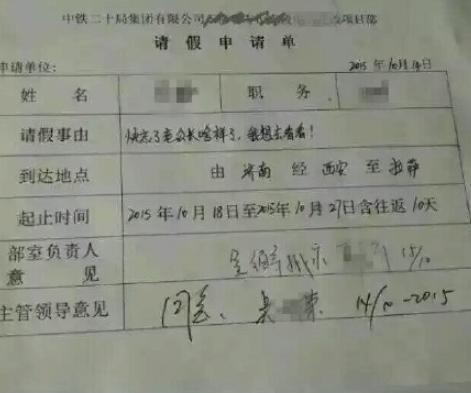 中铁二十局集团有限公司 项目部
请假申请单
申请单位: 2015年10月14日
姓名 职务
请假事由 快忘了老公长啥样了,我想去看看!
到达地点 由济南经西安至拉萨
起止时间 2015年10月18日至2015年10月27日含往返10天
部室负责人
意见 15/10
主管领导意见 同意、吴 14/10-2015